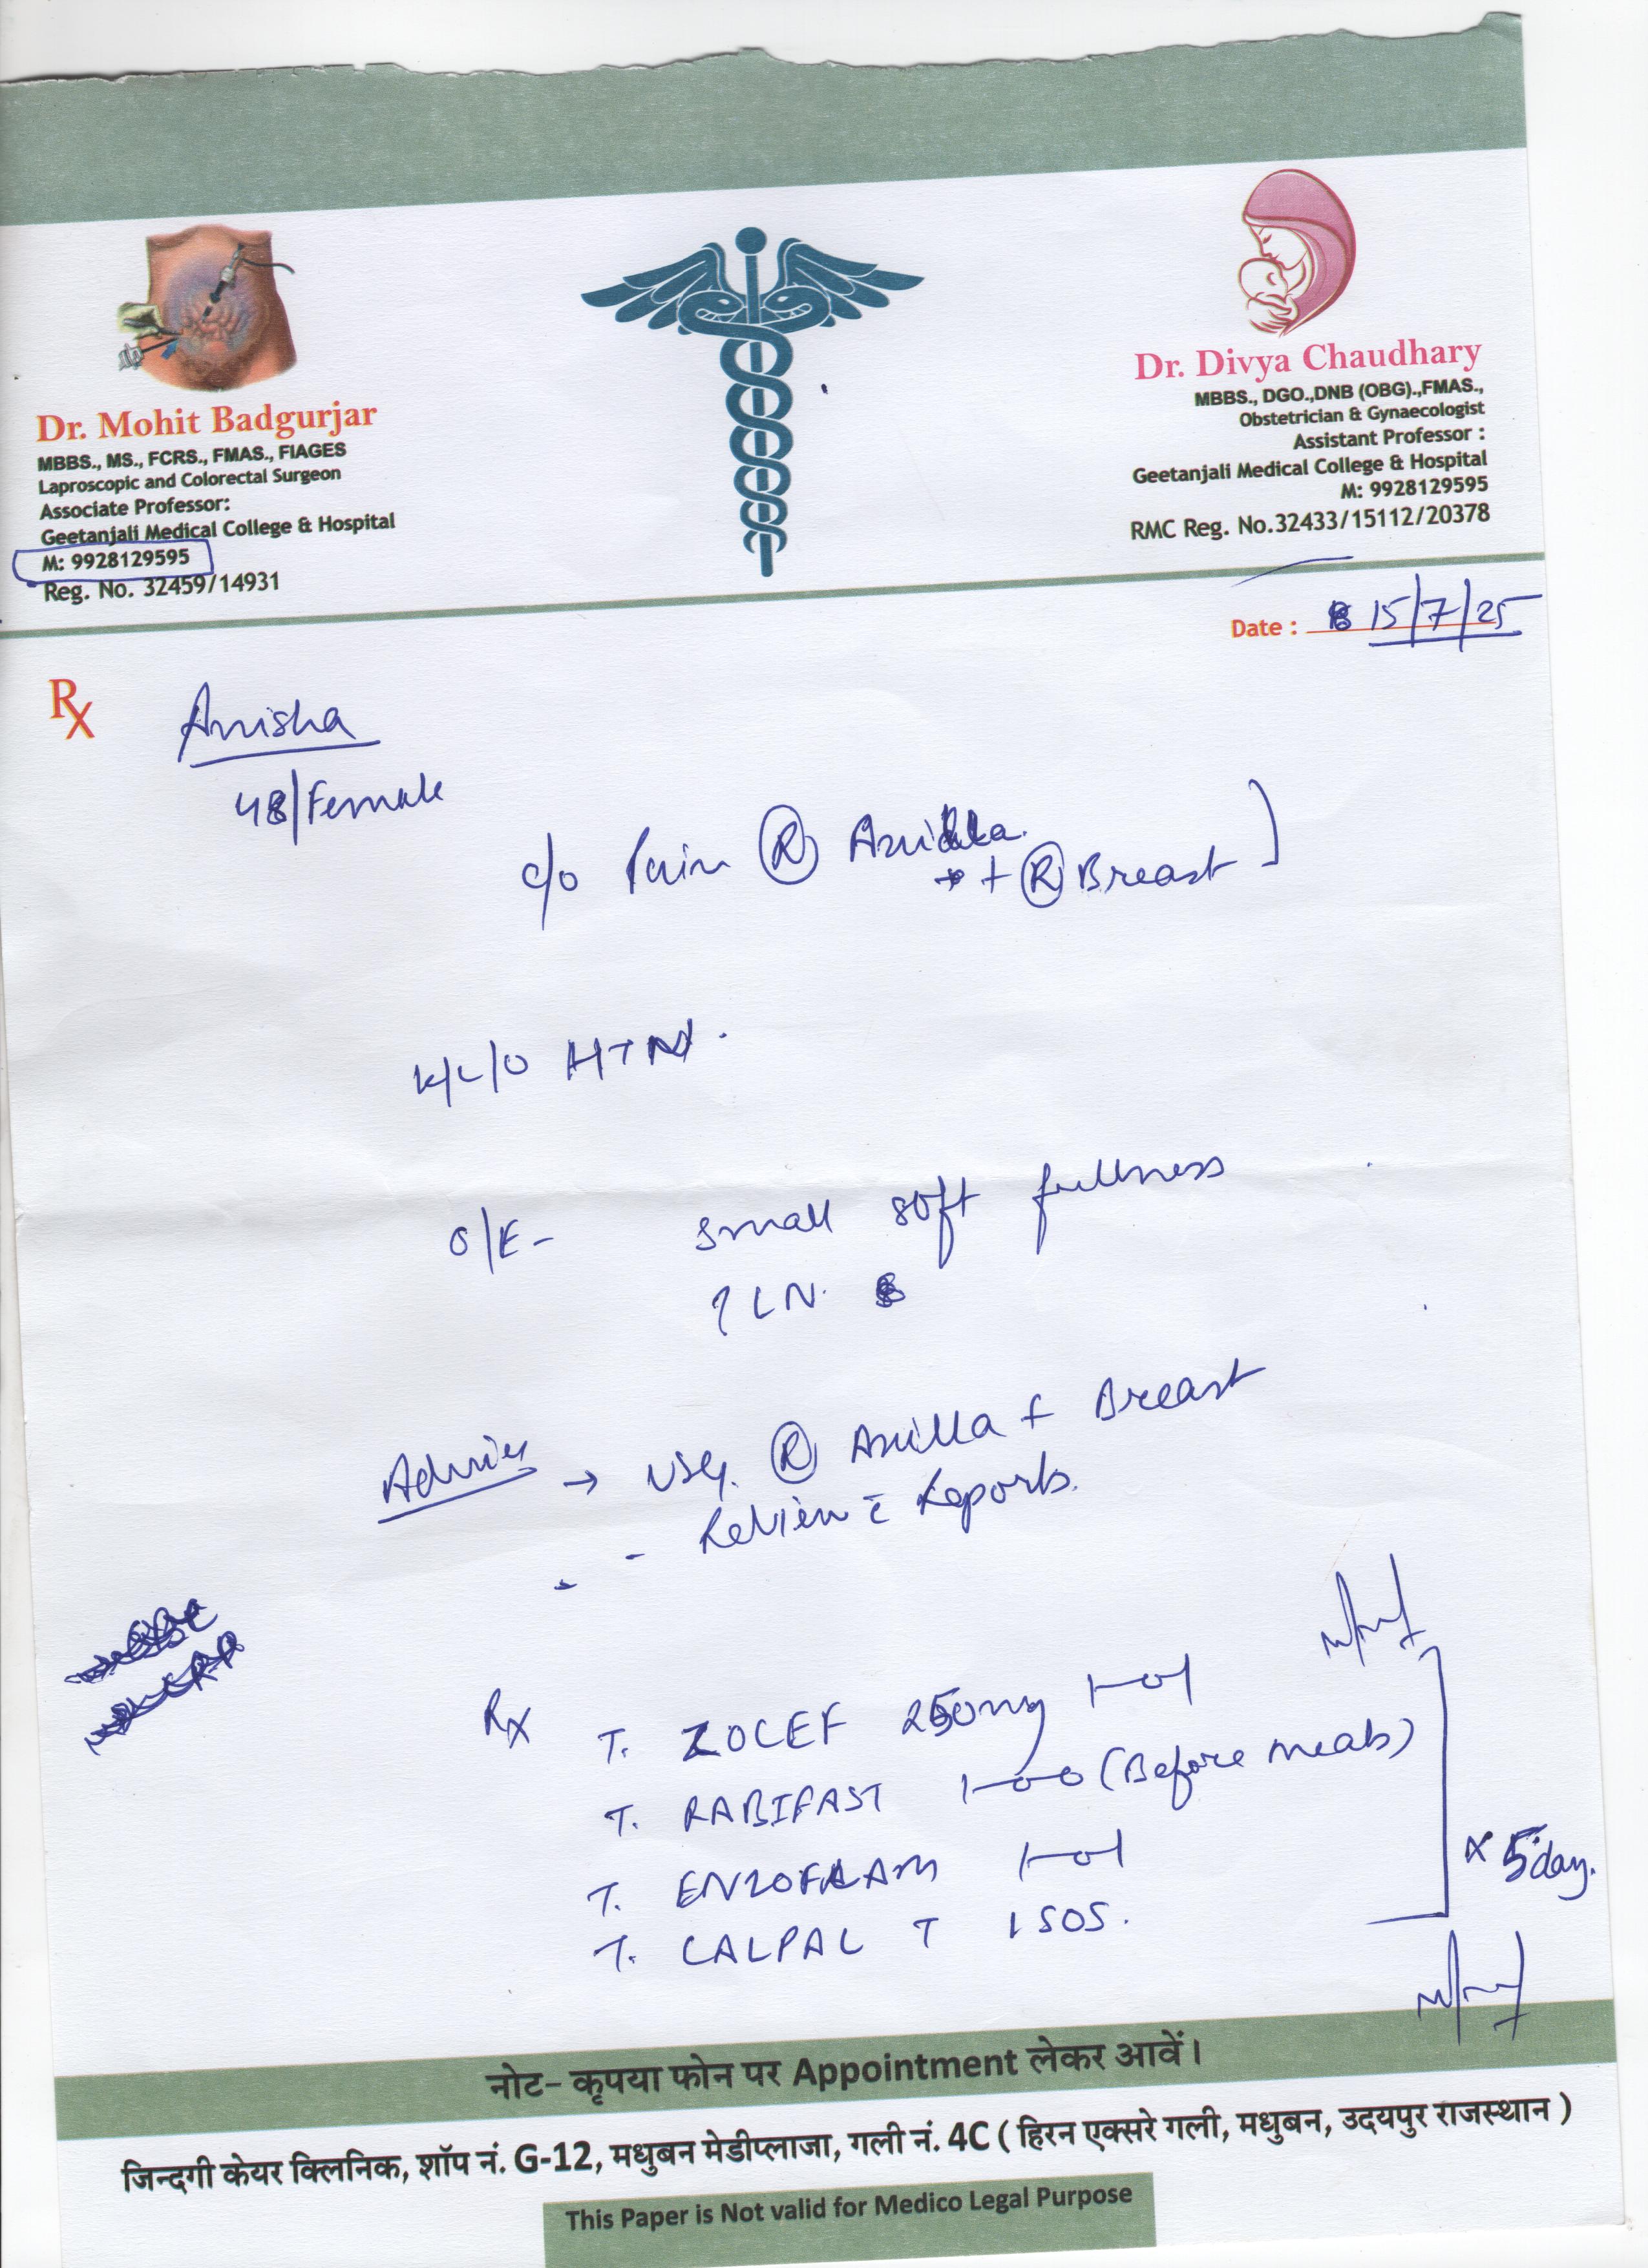 Dr. Mohit Badgurjar
MBBS., MS., FCRS., FMAS., FIAGES
Laproscopic and Colorectal Surgeon
Associate Professor:
Geetanjali Medical College & Hospital
M: 9928129595
Reg. No. 32459/14931
Dr. Divya Chaudhary
MBBS., DGO.,DNB (OBG).,FMAS.,
Obstetrician & Gynaecologist
Assistant Professor :
Geetanjali Medical College & Hospital
M: 9928129595
RMC Reg. No.32433/15112/20378
Date : 15/7/25
Rx
Anisha
48/Female
c/o Pain Ⓡ Axilla
+ Ⓡ Breast
K/C/O HTN.
O/E- small soft fullness
? LN.
Advice → USG. Ⓡ Axilla + Breast
- Review c̄ Reports.
Rx T. ZOCEF 250mg 1-0-1
T. RABIFAST 1-0-0 (Before meals)
T. ENZOFLAM 1-0-1
T. CALPAL T 1 SOS.
x 5 day.
नोट- कृपया फोन पर Appointment लेकर आवें।
जिन्दगी केयर क्लिनिक, शॉप नं. G-12, मधुबन मेडीप्लाजा, गली नं. 4C ( हिरन एक्सरे गली, मधुबन, उदयपुर राजस्थान )
This Paper is Not valid for Medico Legal Purpose